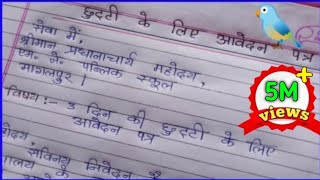 छुट्टी के लिए आवेदन पत्र
सेवा में,
श्रीमान् प्रधानाचार्य महोदय,
एस. के. पब्लिक स्कूल
भागलपुर।
विषय:- 3 दिन की छुट्टी के लिए
आवेदन पत्र
महोदय,
सविनय निवेदन है
5M+
views